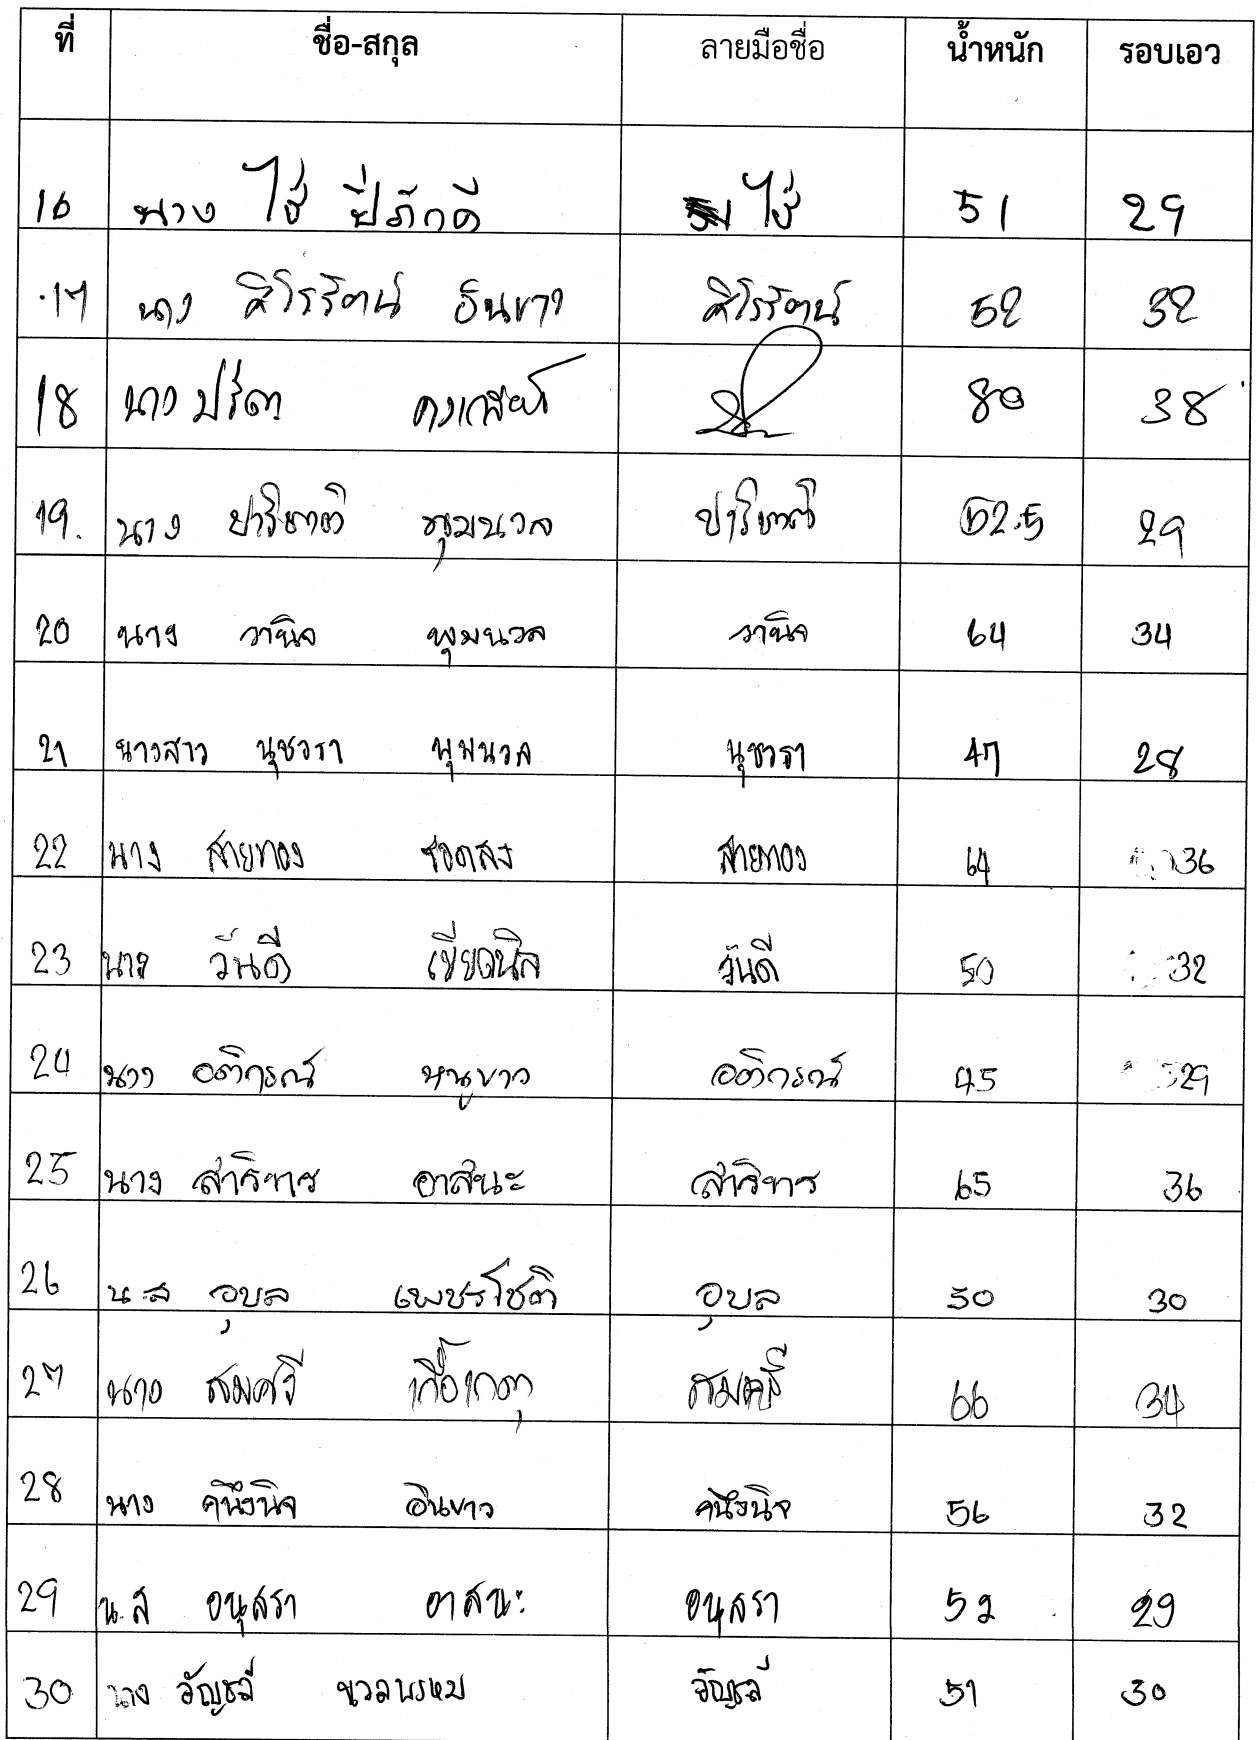 ที่ ชื่อ-สกุล ลายมือชื่อ น้ำหนัก รอบเอว
16 นาง ไข่ ปี่ภักดี ไข่ 51 29
17 นาง ศิโรรัตน์ อินขาว ศิโรรัตน์ 52 32
18 นาง ปรีดา คงเกลี้ยง 80 38
19. นาง ปาริชาติ พุมนวล ปาริชาติ 52.5 29
20 นาง วานิจ พุมนวล วานิจ 64 34
21 นางสาว นุชวรา พุมนวล นุชวรา 47 28
22 นาง สายทอง รอดสง สายทอง 64 36
23 นาง วันดี เขียดนิล วันดี 50 32
24 นาง อติกรณ์ หนูขาว อติกรณ์ 45 29
25 นาง สาริทาร อาสนะ สาริทาร 65 36
26 น.ส อุบล เพชรโชติ อุบล 50 30
27 นาง สมศรี เกื้อเกตุ สมศรี 66 34
28 นาง คนึงนิจ อินขาว คนึงนิจ 56 32
29 น.ส อนุสรา อาสนะ อนุสรา 52 29
30 นาง อัญชลี นวลพรหม อัญชลี 51 30